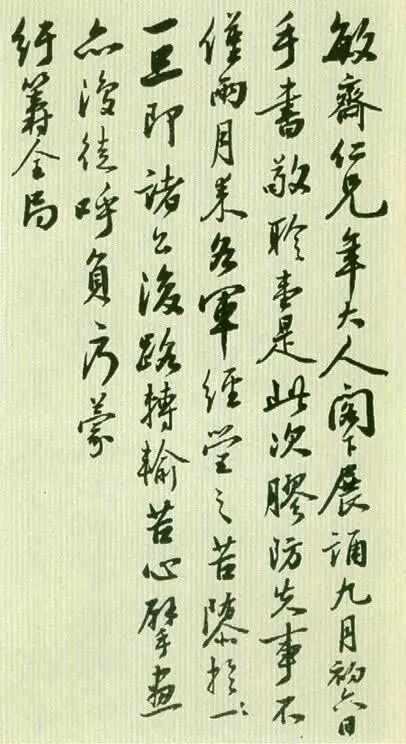 敏齋仁兄年大人閣下展誦九月初六日
手書敬聆壹是此次膠防失事不
僅兩月來各軍經營之苦隳於一
旦即諸公後路轉輸苦心擘畫
亦復徒呼負負承蒙
紆籌全局